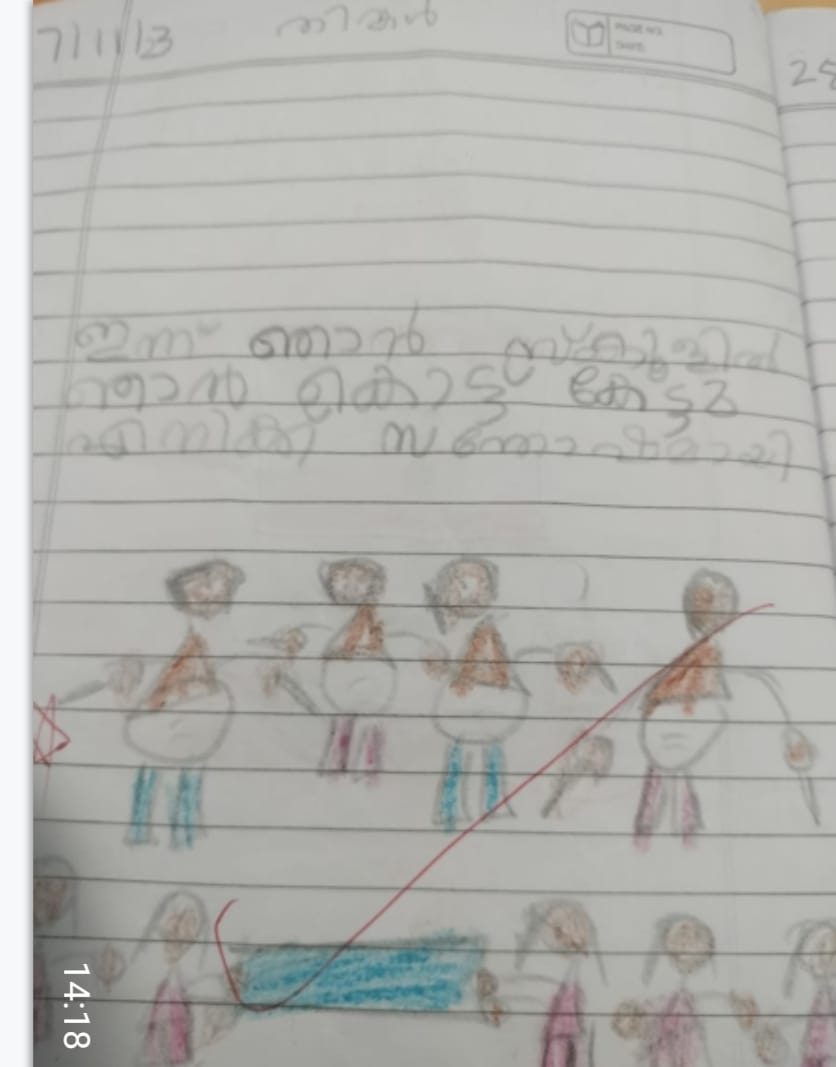 7/11/23 തിങ്കൾ
PAGE NO.
DATE:
28
ഇന്ന് ഞാൻ സ്കൂളിൽ
ഞാൻ കൊട്ട് കേട്ടു
എനിക്ക് സന്തോഷമായി
14:18